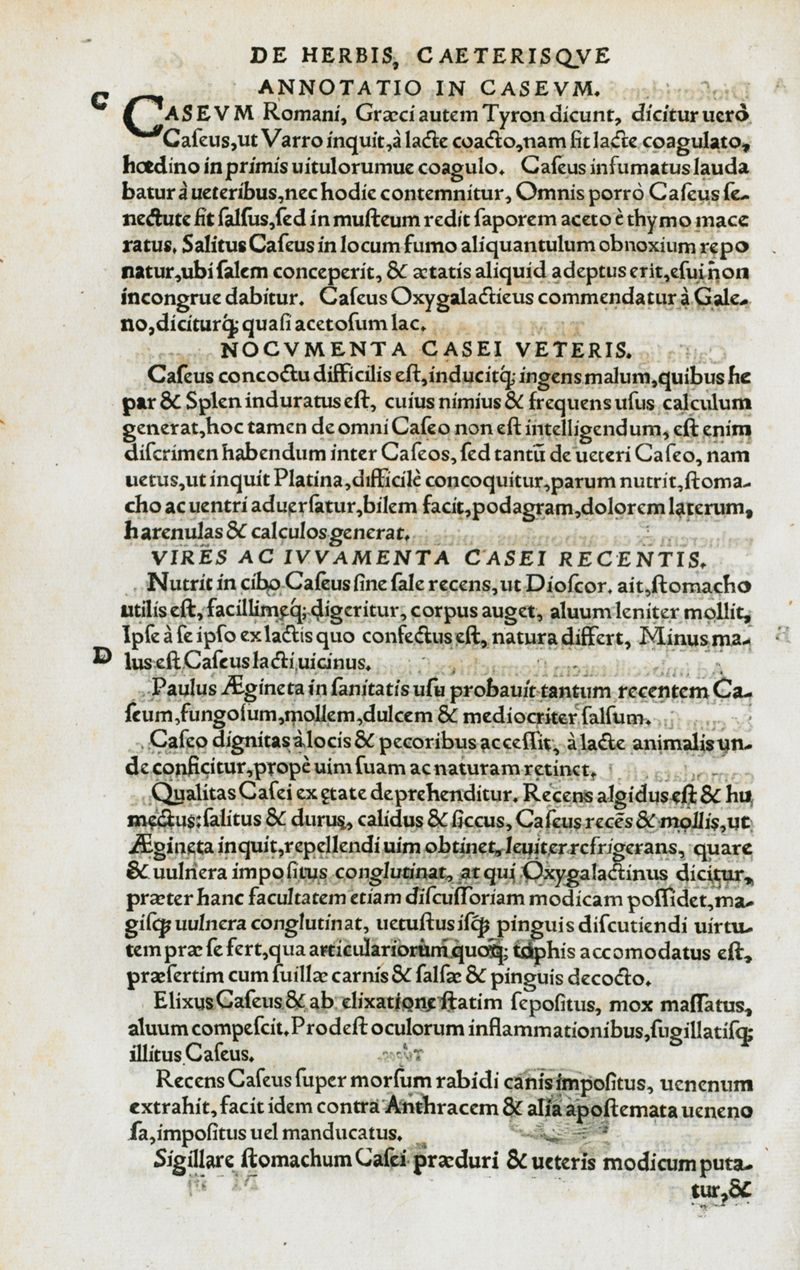 DE HERBIS, CAETERISQVE
ANNOTATIO IN CASEVM.
C
CASEVM Romani, Græci autem Tyron dicunt, dicitur uerò
Caſeus,ut Varro inquit,à lacte coacto,nam fit lacte coagulato,
hœdino in primis uitulorumue coagulo. Caſeus infumatus lauda
batur à ueteribus,nec hodie contemnitur, Omnis porrò Caſeus ſe-
nectute fit ſalſus,ſed in muſteum redit ſaporem aceto è thymo mace
ratus. Salitus Caſeus in locum fumo aliquantulum obnoxium repo
natur,ubi ſalem conceperit, & ætatis aliquid adeptus erit,eſui ñon
incongrue dabitur. Caſeus Oxygalacticus commendatur à Gale-
no,diciturq́; quaſi acetoſum lac.
NOCVMENTA CASEI VETERIS.
Caſeus concoctu difficilis eſt,inducitq́; ingens malum,quibus he
par & Splen induratus eſt, cuius nimius & frequens uſus calculum
generat,hoc tamen de omni Caſeo non eſt intelligendum, eſt enim
diſcrimen habendum inter Caſeos, ſed tantũ de ueteri Caſeo, nam
uetus,ut inquit Platina,difficilè concoquitur,parum nutrit,ſtoma-
cho ac uentri aduerſatur,bilem facit,podagram,dolorem laterum,
harenulas & calculos generat.
VIRES AC IVVAMENTA CASEI RECENTIS.
Nutrit in cibo Caſeus ſine ſale recens, ut Dioſcor. ait,ſtomacho
utilis eſt, facillimeq́; digeritur, corpus auget, aluum leniter mollit,
Ipſe à ſe ipſo ex lactis quo confectus eſt, natura differt, Minus ma-
D
lus eſt Caſeus lacti uicinus.
Paulus Ægineta in ſanitatis uſu probauit tantum recentem Ca-
ſeum,fungoſum,mollem,dulcem & mediocriter ſalſum.
Caſeo dignitas à locis & pecoribus acceſſit, à lacte animalis un-
de conficitur,propè uim ſuam ac naturam retinet.
Qualitas Caſei ex ętate deprehenditur. Recens algidus eſt & hu
mectus: ſalitus & durus, calidus & ſiccus, Caſeus recẽs & mollis,ut
Ægineta inquit,repellendi uim obtinet, leuiter refrigerans, quare
& uulnera impoſitus conglutinat, at qui Oxygalactinus dicitur,
præter hanc facultatem etiam diſcuſſoriam modicam poſſidet,ma-
giſq́; uulnera conglutinat, uetuſtus iſq́; pinguis diſcutiendi uirtu-
tem præ ſe fert,qua articulariorum quoq́; tophis accomodatus eſt,
præſertim cum ſuillæ carnis & ſalſæ & pinguis decocto.
Elixus Caſeus & ab elixatione ſtatim ſepoſitus, mox maſſatus,
aluum compeſcit. Prodeſt oculorum inflammationibus,ſugillatiſq́;
illitus Caſeus.
Recens Caſeus ſuper morſum rabidi canis impoſitus, uenenum
extrahit, facit idem contra Anthracem & alia apoſtemata ueneno
ſa,impoſitus uel manducatus.
Sigillare ſtomachum Caſei præduri & ueteris modicum puta-
tur,&